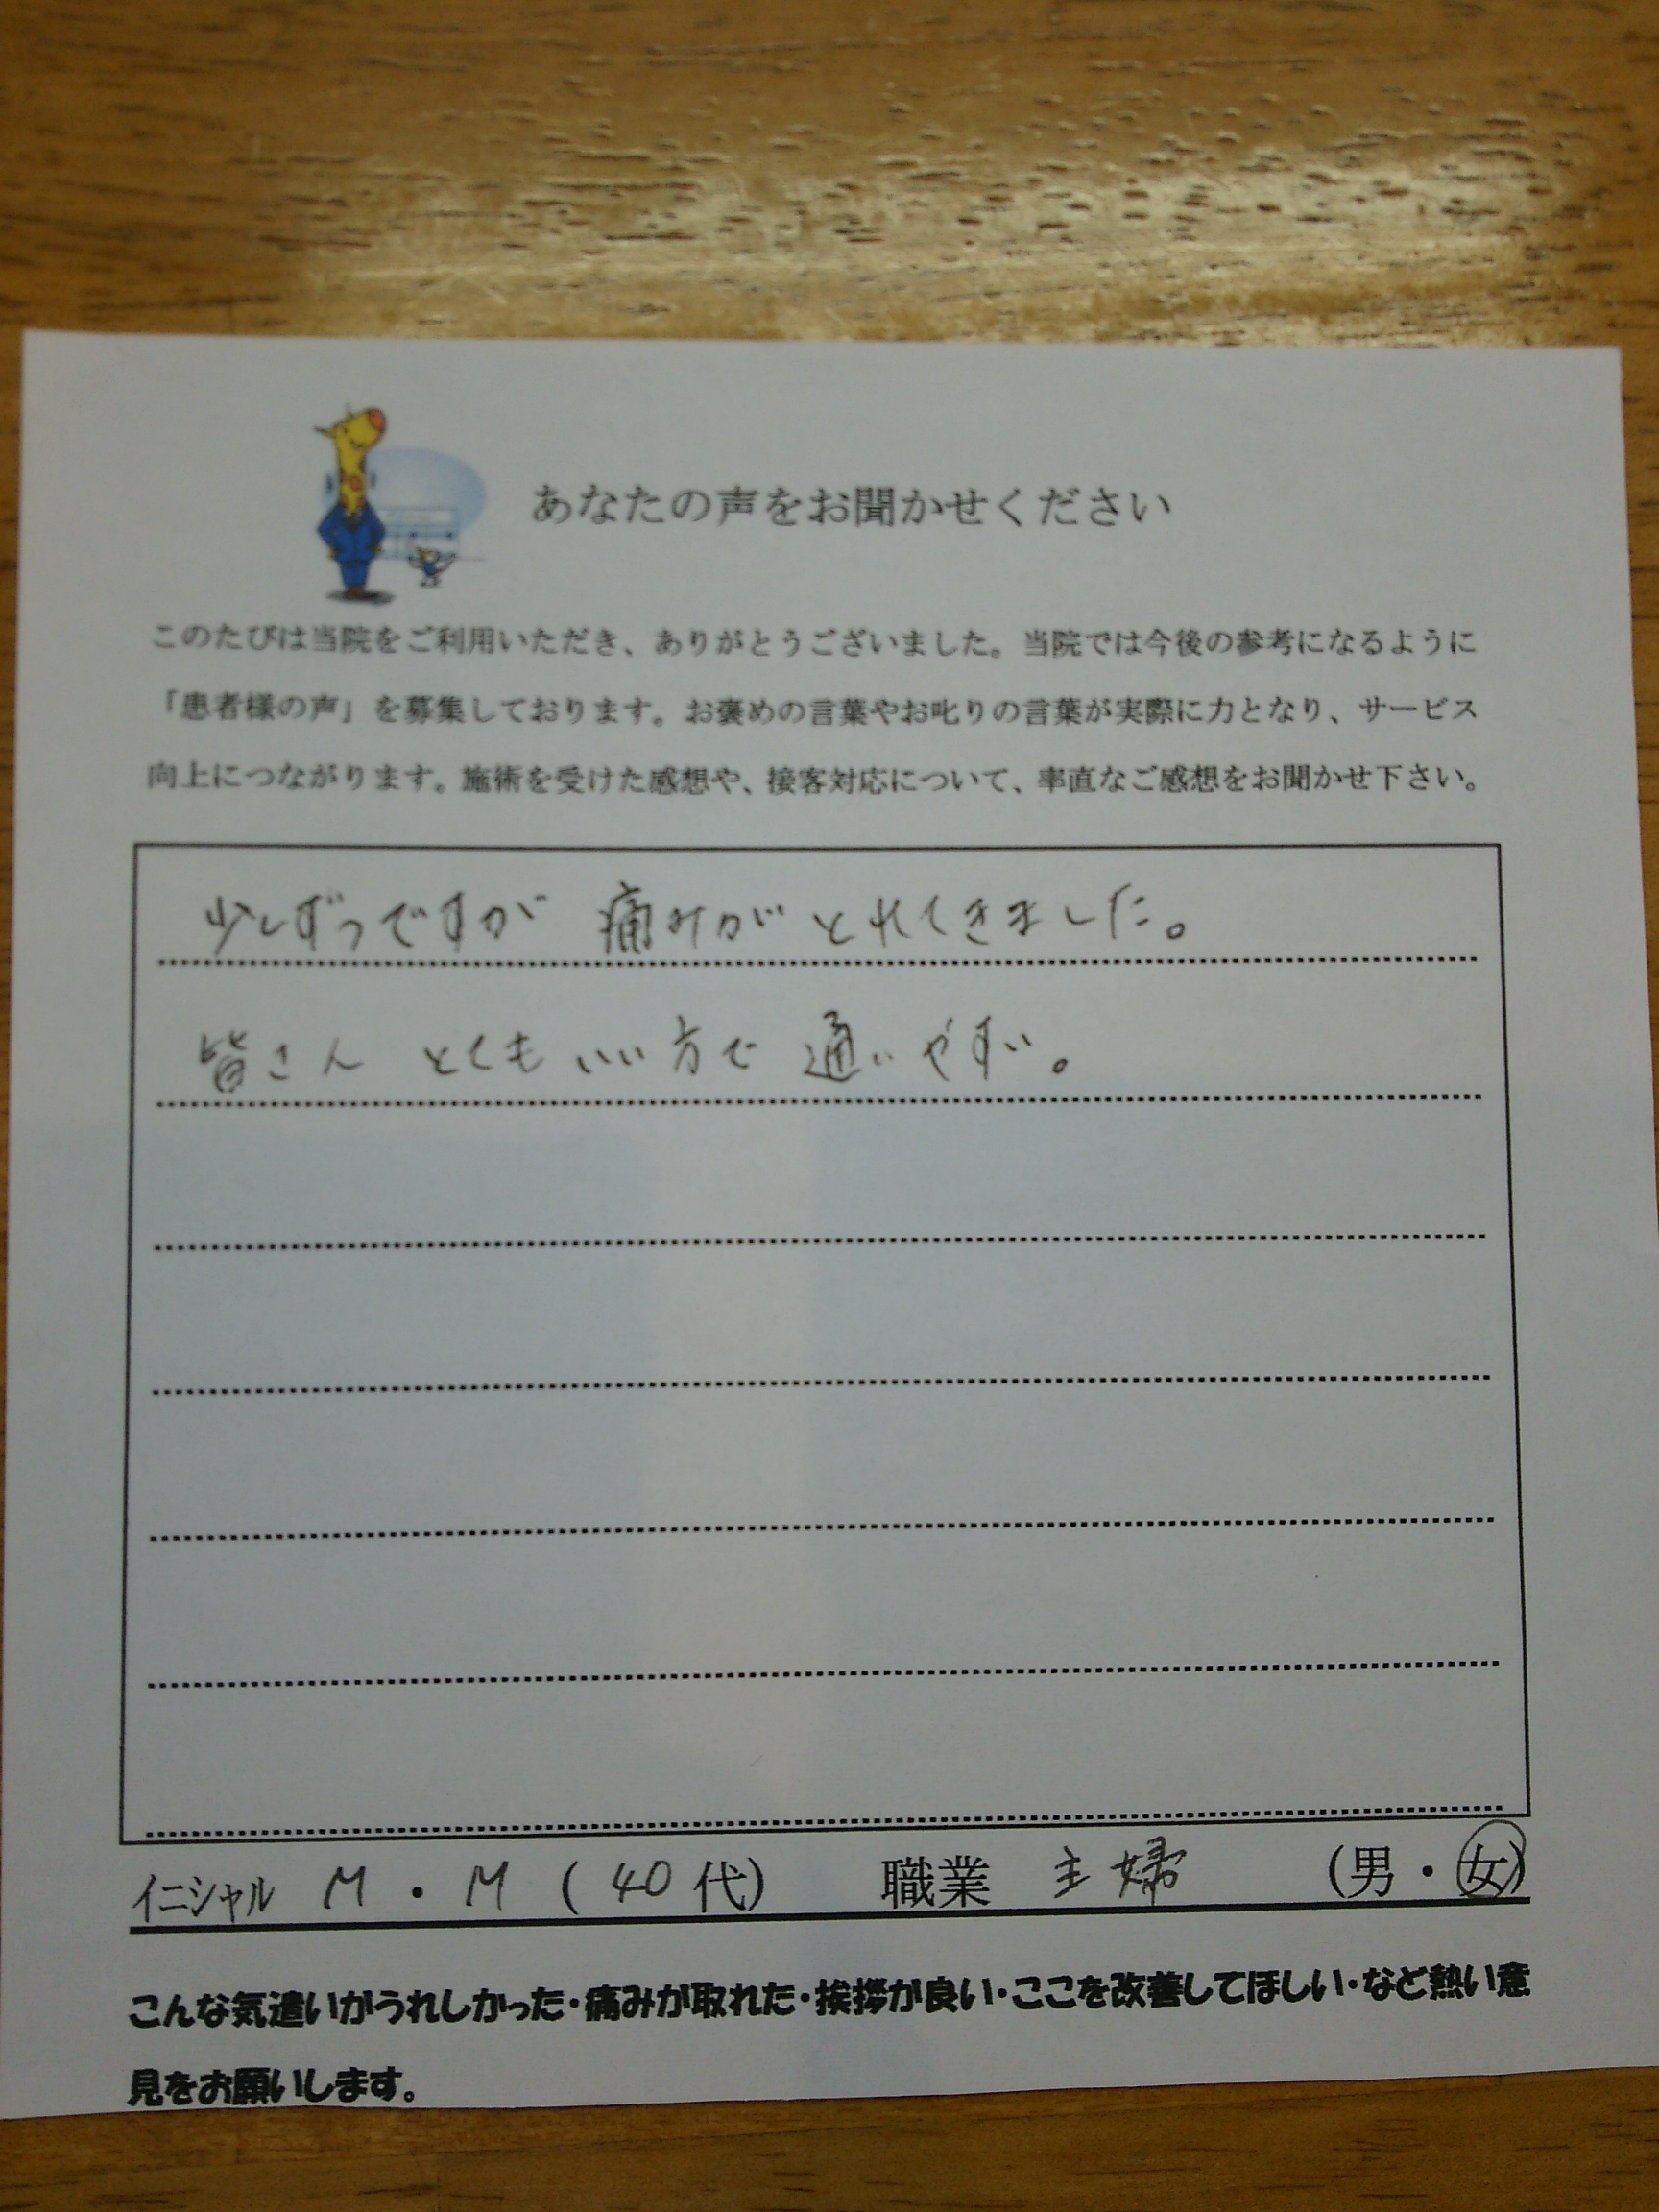 あなたの声をお聞かせください
このたびは当院をご利用いただき、ありがとうございました。当院では今後の参考になるように
「患者様の声」を募集しております。お褒めの言葉やお叱りの言葉が実際に力となり、サービス
向上につながります。施術を受けた感想や、接客対応について、率直なご感想をお聞かせ下さい。
少しずつですが 痛みがとれてきました。
皆さん とてもいい方で 通いやすい。
イニシャル M・M(40代) 職業 主婦 (男・女)
こんな気遣いがうれしかった・痛みが取れた・挨拶が良い・ここを改善してほしい・など熱い意
見をお願いします。